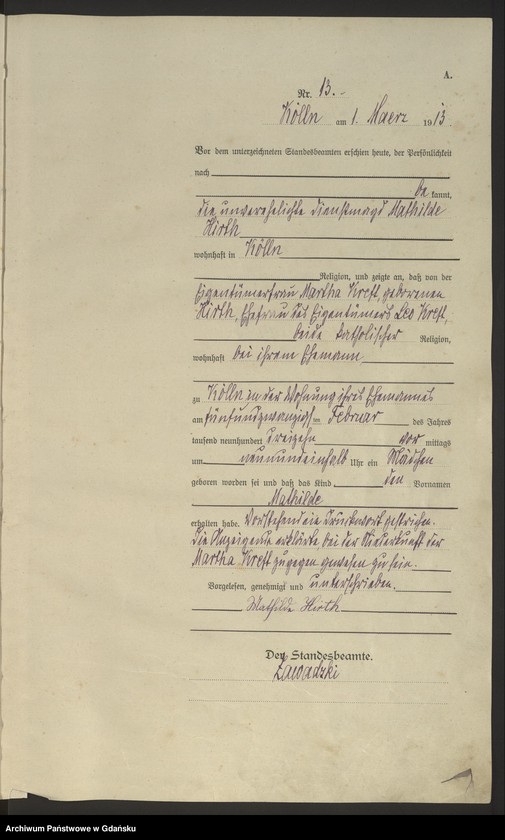 A.
Nr. 13.-
Kölln am 1. Maerz 1913
Vor dem unterzeichneten Standesbeamten erschien heute, der Persönlichkeit
nach
be kannt,
die unverehelichte Dienstmagd Mathilde
Hirth
wohnhaft in Kölln
Religion, und zeigte an, daß von der
Eigentümerfrau Martha Kreft, geborenen
Hirth, Ehefrau des Eigentümers Leo Kreft,
beide katholischer Religion,
wohnhaft bei ihrem Ehemann
zu Kölln, in der Wohnung ihres Ehemannes
am fünfundzwanzigsten Februar des Jahres
tausend neunhundert dreizehn vor mittags
um neunundeinhalb Uhr ein Mädchen
geboren worden sei und daß das Kind den Vornamen
Mathilde
erhalten habe. Vorstehend ein Druckwort gestrichen.
Die Anzeigende erklärte, bei der Niederkunft der
Martha Kreft zugegen gewesen zu sein.
Vorgelesen, genehmigt und unterschrieben.
Mathilde Hirth
Der Standesbeamte.
Zawadzki
Archiwum Państwowe w Gdańsku